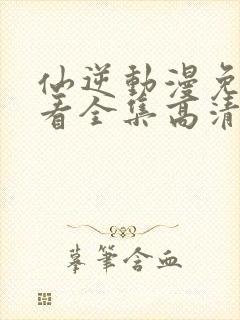 仙逆動漫免
看全集高清
摹筆含血